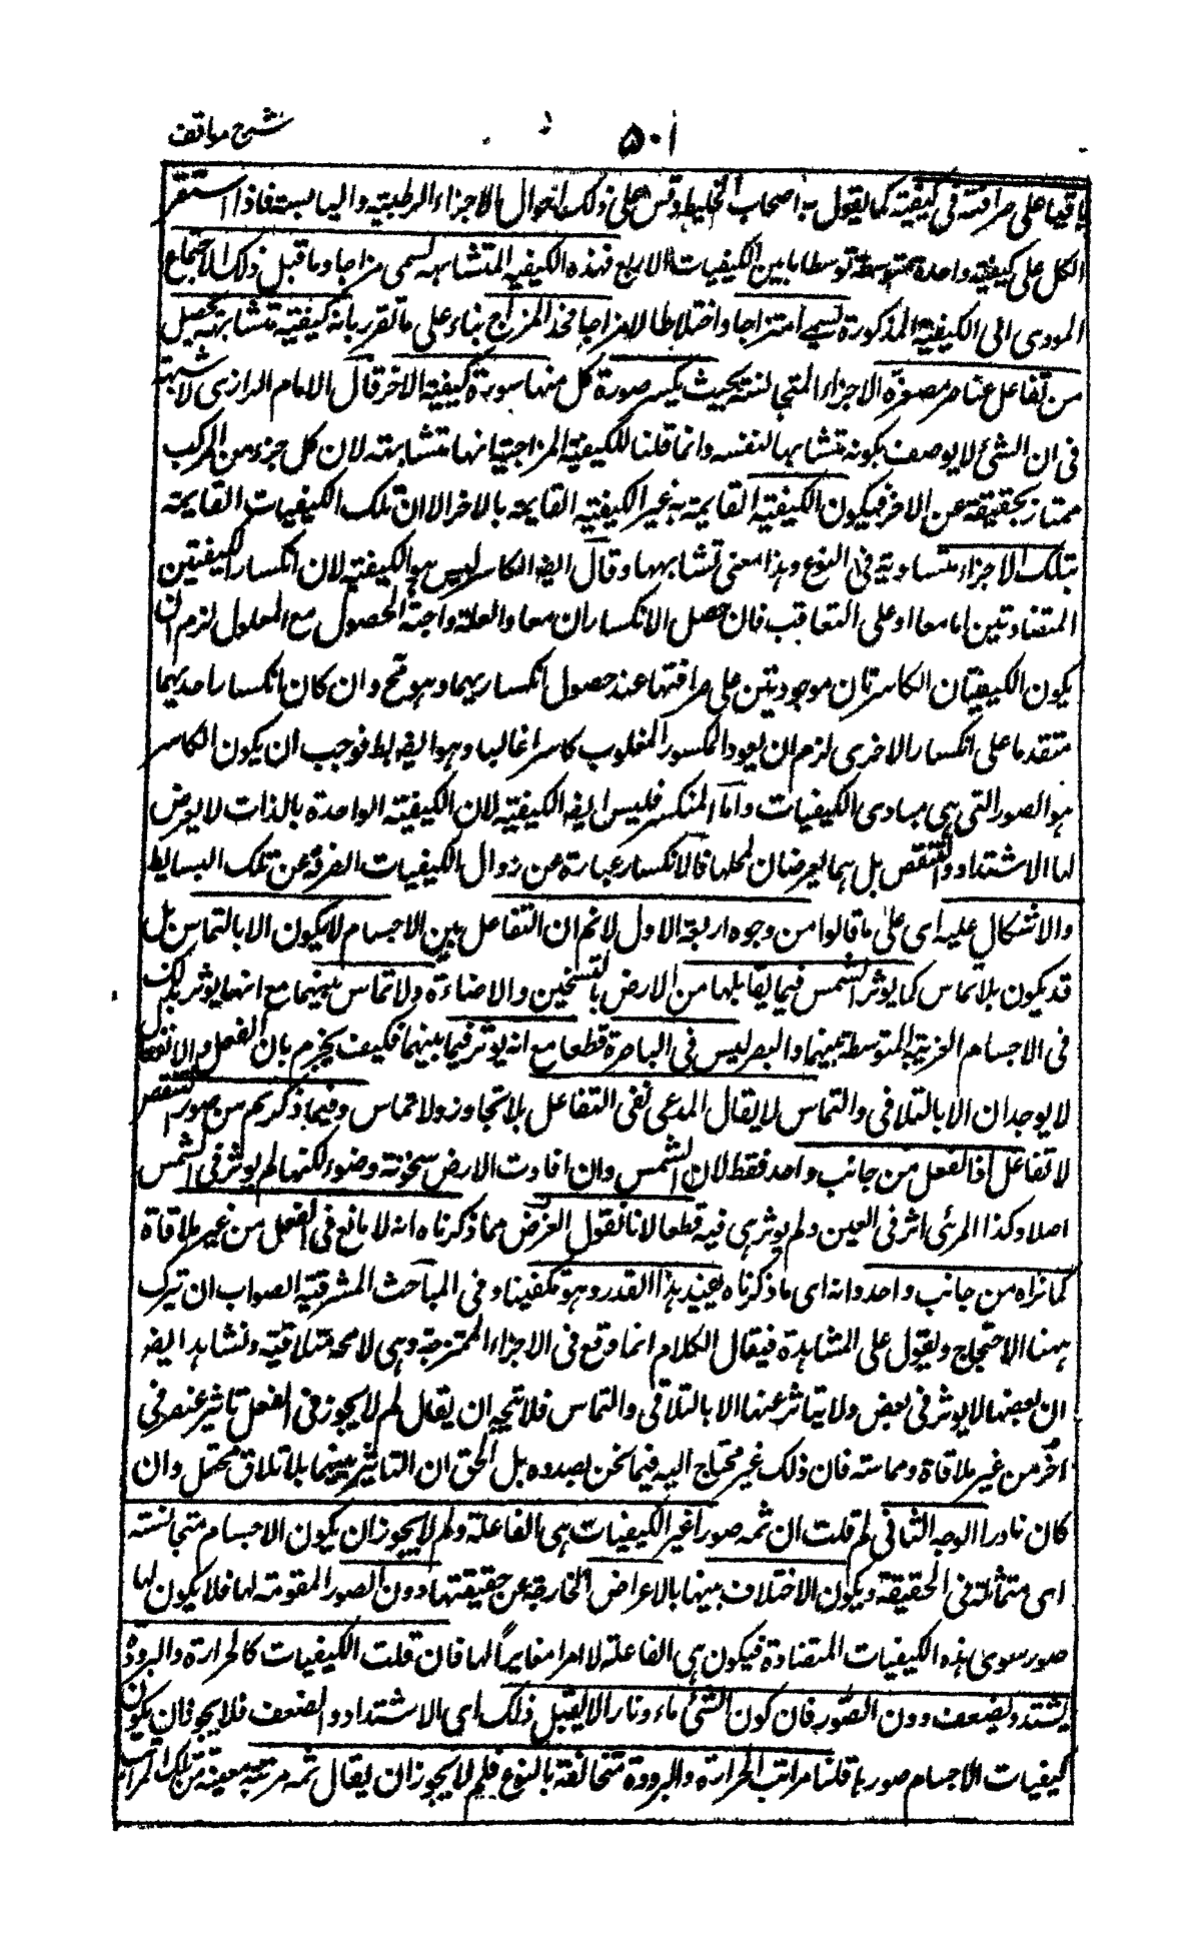 شرح مواقف
٥٠١
باقيا على صرافته فى كيفيته كما يقول به اصحاب الخليط وقس على ذلك احوال الاجزاء الرطبة واليابسة فاذا استقر
الكل على كيفية واحدة متوسطة توسطا ما بين الكيفيات الاربع فهذه الكيفية المتشابهة تسمى مزاجا وما قبل ذلك الاجتماع
المودى الى الكيفية المذكورة يسمى امتزاجا واختلاطا لا مزاجا فحد المزاج بناء على ما تقرر بانه كيفية متشابهة تحصل
من تفاعل عناصر مصغرة الاجزاء المتجانسة بحيث يكسر صورة كل منها سورة كيفية الاخر قال الامام الرازى لا شبهة
فى ان الشئ لا يوصف بكونه متشابها لنفسه وانما قلنا للكيفية المزاجية انها متشابهة لان كل جزء من المركب
ممتاز بحقيقته عن الاخر فيكون الكيفية القايمة به غير الكيفية القايمة بالاخر الا ان تلك الكيفيات القايمة
بتلك الاجزاء متساوية فى النوع وهذا معنى تشابهها وقال ايضا الكاسر ليس هو الكيفية لان انكسار الكيفيتين
المتضادتين اما معا او على التعاقب فان حصل الانكساران معا والعلة واجبة الحصول مع المعلول لزم ان
يكون الكيفيتان الكاسرتان موجودتين على صرافتهما عند حصول انكساريهما وهو مح وان كان انكسار احديهما
متقدما على انكسار الاخرى لزم ان يعود المكسور المغلوب كاسرا غالبا وهو ايضا بط فوجب ان يكون الكاسر
هو الصور التى هى مبادى الكيفيات واما المنكسر فليس ايضا الكيفية لان الكيفية الواحدة بالذات لا يعرض
لها الاشتداد والتنقص بل هما يعرضان لمحلها فالانكسار عبارة عن زوال الكيفيات الصرفة عن تلك البسائط
والاشكال عليه اى على ما قالوا من وجوه اربعة الاول لا نم ان التفاعل بين الاجسام لا يكون الا بالتماس بل
قد يكون بلا تماس كما يوثر الشمس فيما يقابلها من الارض بالتسخين والاضاءة ولا تماس بينهما مع انها يوثر بذلك
فى الاجسام القريبة المتوسطة بينهما والبصر ليس فى الباصرة قطعا مع انه يوثر فيما بينهما فكيف يجزم بان الفعل والانفعال
لا يوجدان الا بالتلاقى والتماس لا يقال المدعى نفى التفاعل بلا تجاوز ولا تماس وفيما ذكرتم من صور النقص
لا تفاعل اذ الفعل من جانب واحد فقط لان الشمس وان افادت الارض سخونة وضوء لكنها لم يوثر فى الشمس
اصلا وكذا المرئى اثر فى العين ولم يوثر هى فيه قطعا لانا نقول الغرض مما ذكرناه انه لا مانع فى الفعل من غير ملاقاة
كما نراه من جانب واحد وانه اى ما ذكرناه يفيد هذا القدر وهو مكفينا وفى المباحث المشرقية الصواب ان تيرك
ههنا الاحتجاج ويقول على المشاهدة فيقال الكلام انما وقع فى الاجزاء الممتزجة وهى لا محة متلاقية ونشاهد ايضا
ان بعضها لا يوثر فى بعض ولا يتاثر عنها الا بالتلاقى والتماس فلا يتجه ان يقال لم لا يجوز فى الفعل تاثير عنصر فى
آخر من غير ملاقاة ومماسة فان ذلك غير محتاج اليه فيما نحن بصدده بل الحق ان التاثير بينهما بلا تلاق محتمل وان
كان نادرا الوجه الثانى لم قلت ان ثمه صورا غير الكيفيات هى الفاعلة ولم لا يجوز ان يكون الاجسام متجانسته
اى متماثلة فى الحقيقة ويكون الاختلاف بينها بالاعراض الخارجة عن حقيقتها دون الصور المقومة لها فلا يكون لها
صور سوى هذه الكيفيات المتضادة فيكون هى الفاعلة لا امرا مغايرًا لها فان قلت الكيفيات كالحرارة والبرودة
يشتد ويضعف دون الصور فان كون الشئ ماء ونارا لا يقبل ذلك اى الاشتداد والضعف فلا يجوز ان يكون
كيفيات الاجسام صورها قلنا مراتب الحرارة والبرودة متخالفة بالنوع فلم لا يجوز ان يقال ثمه مرتبة معينة من تلك المراتب